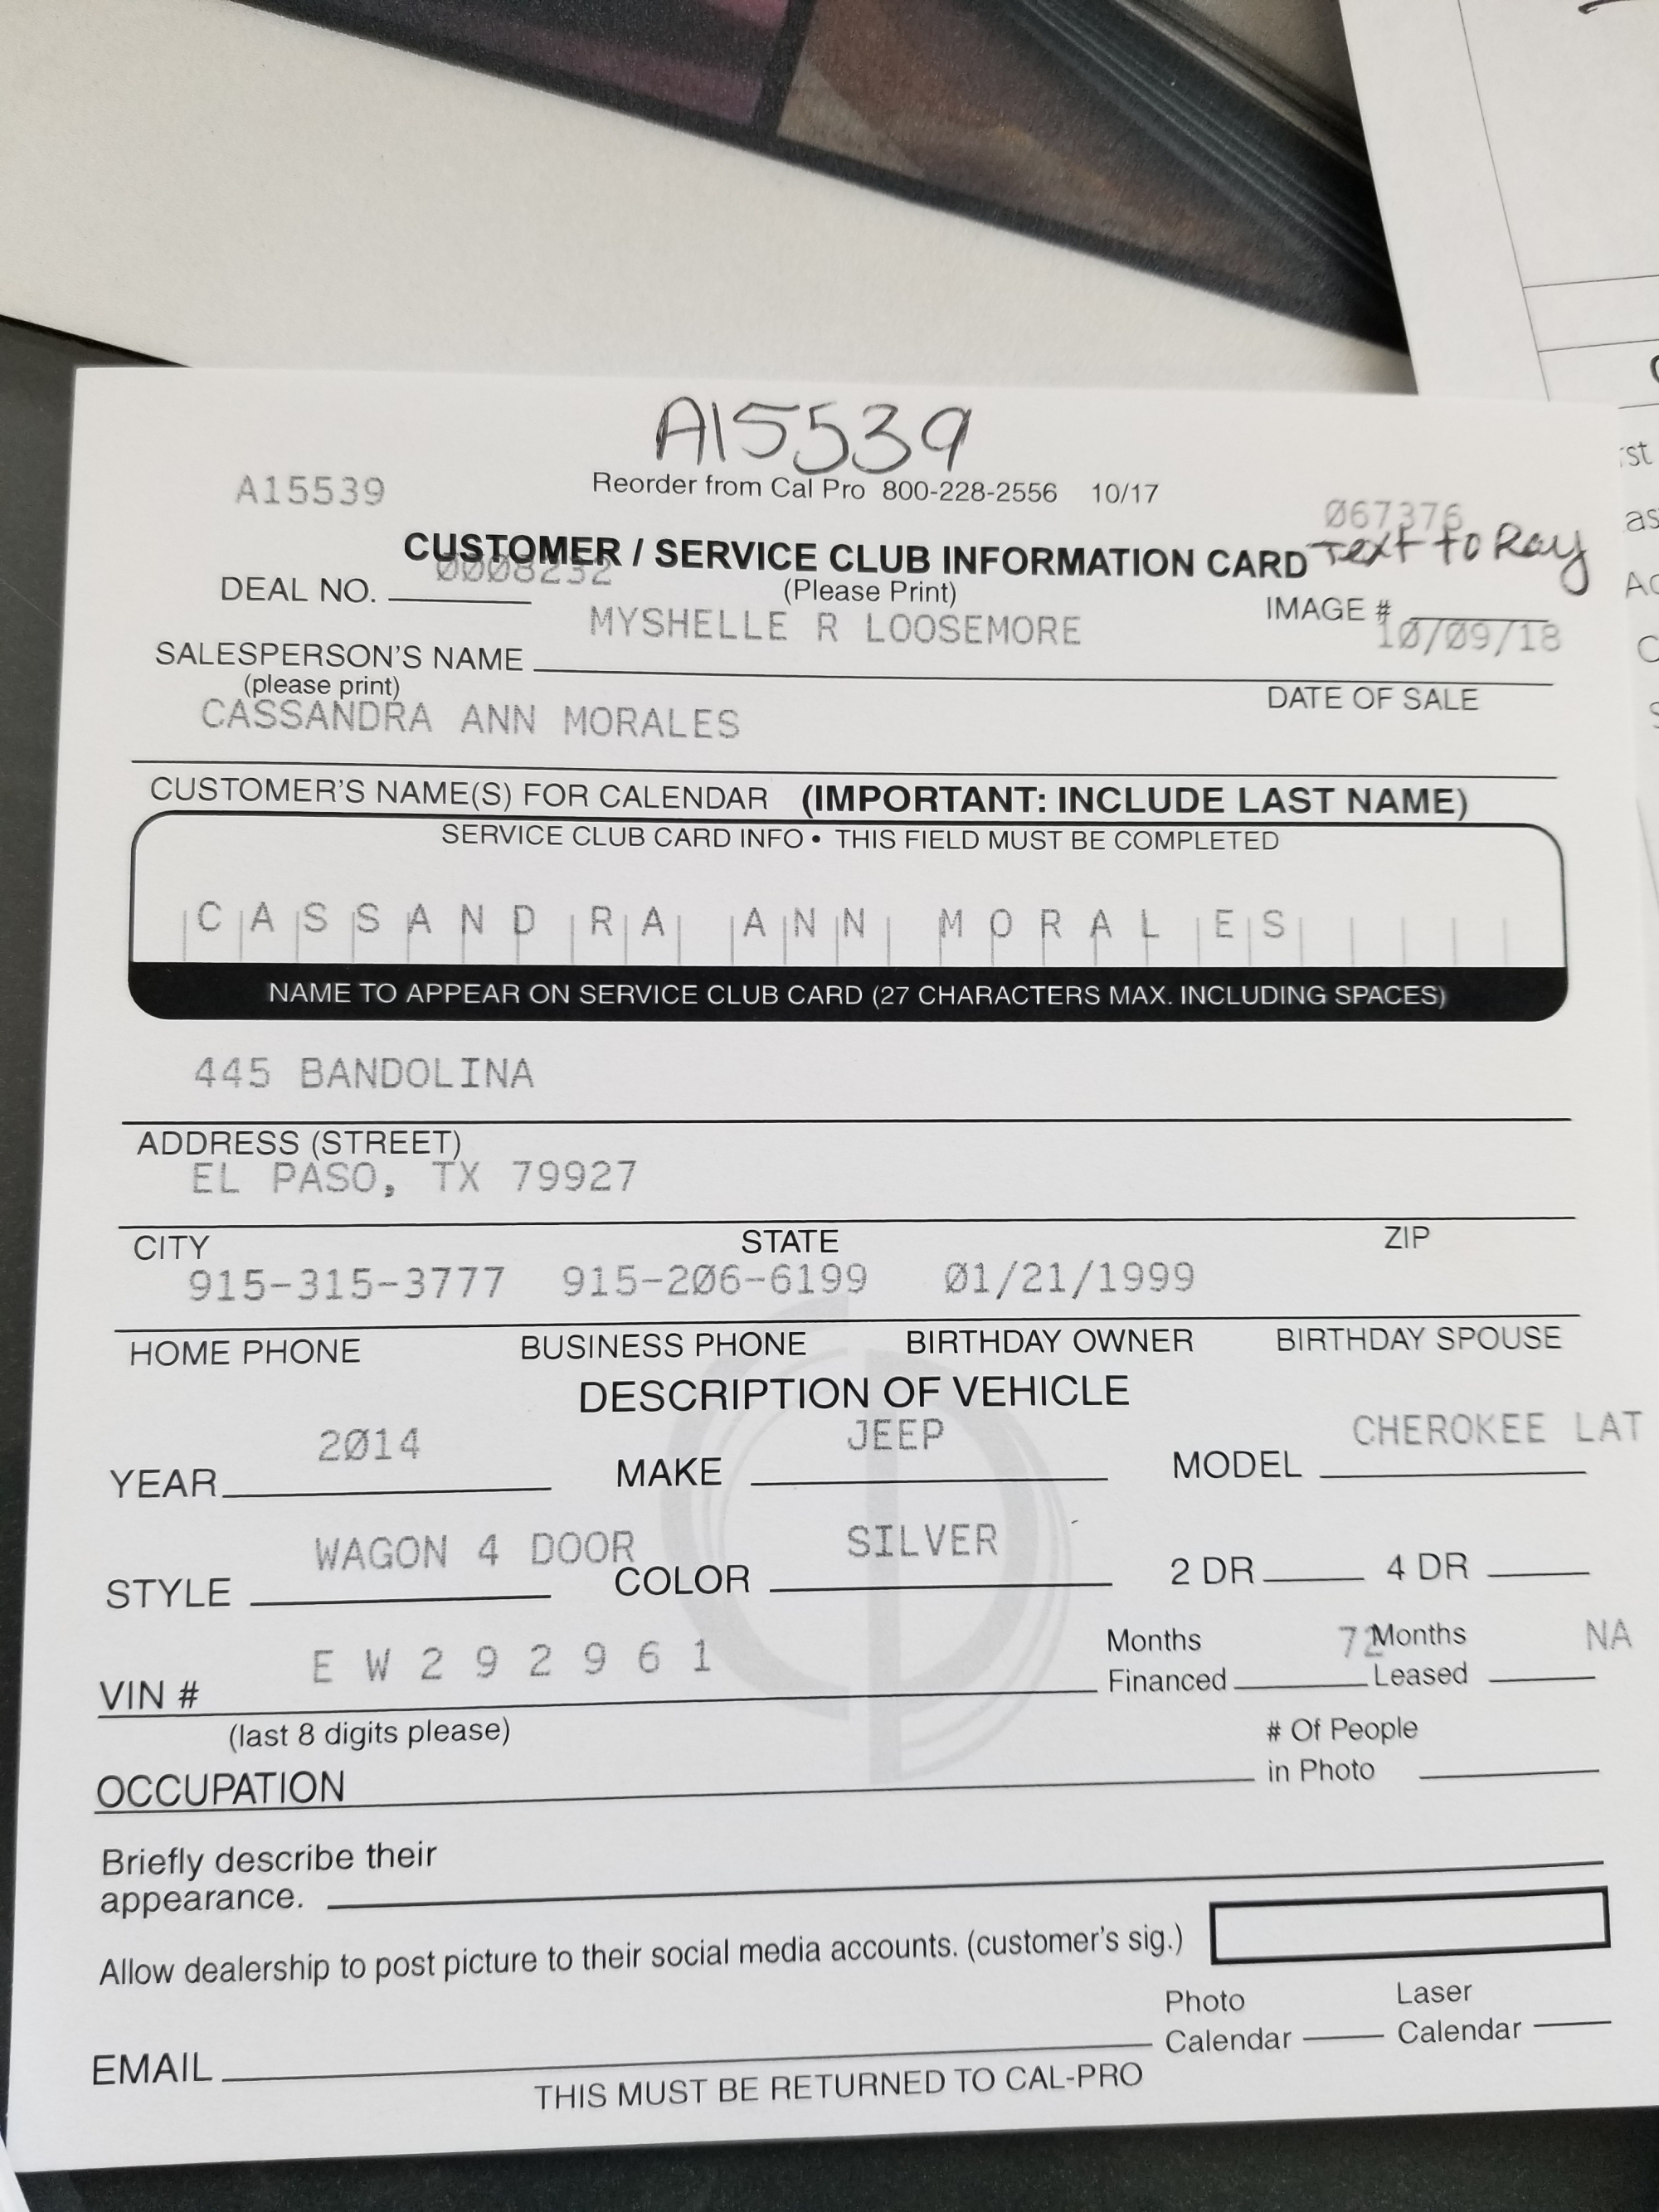 A15539
A15539 Reorder from Cal Pro 800-228-2556 10/17
067376
CUSTOMER / SERVICE CLUB INFORMATION CARD Text to Ray
DEAL NO. 0008232 (Please Print)
IMAGE #
SALESPERSON'S NAME MYSHELLE R LOOSEMORE 10/09/18
(please print) DATE OF SALE
CASSANDRA ANN MORALES
CUSTOMER'S NAME(S) FOR CALENDAR (IMPORTANT: INCLUDE LAST NAME)
SERVICE CLUB CARD INFO • THIS FIELD MUST BE COMPLETED
CASSANDRA ANN MORALES
NAME TO APPEAR ON SERVICE CLUB CARD (27 CHARACTERS MAX. INCLUDING SPACES)
445 BANDOLINA
ADDRESS (STREET)
EL PASO, TX 79927
CITY STATE ZIP
915-315-3777 915-206-6199 01/21/1999
HOME PHONE BUSINESS PHONE BIRTHDAY OWNER BIRTHDAY SPOUSE
DESCRIPTION OF VEHICLE
YEAR 2014 MAKE JEEP MODEL CHEROKEE LAT
STYLE WAGON 4 DOOR COLOR SILVER 2 DR 4 DR
VIN # E W 2 9 2 9 6 1 Months Financed 72 Months Leased NA
(last 8 digits please)
OCCUPATION # Of People in Photo
Briefly describe their
appearance.
Allow dealership to post picture to their social media accounts. (customer's sig.)
EMAIL Photo Calendar Laser Calendar
THIS MUST BE RETURNED TO CAL-PRO